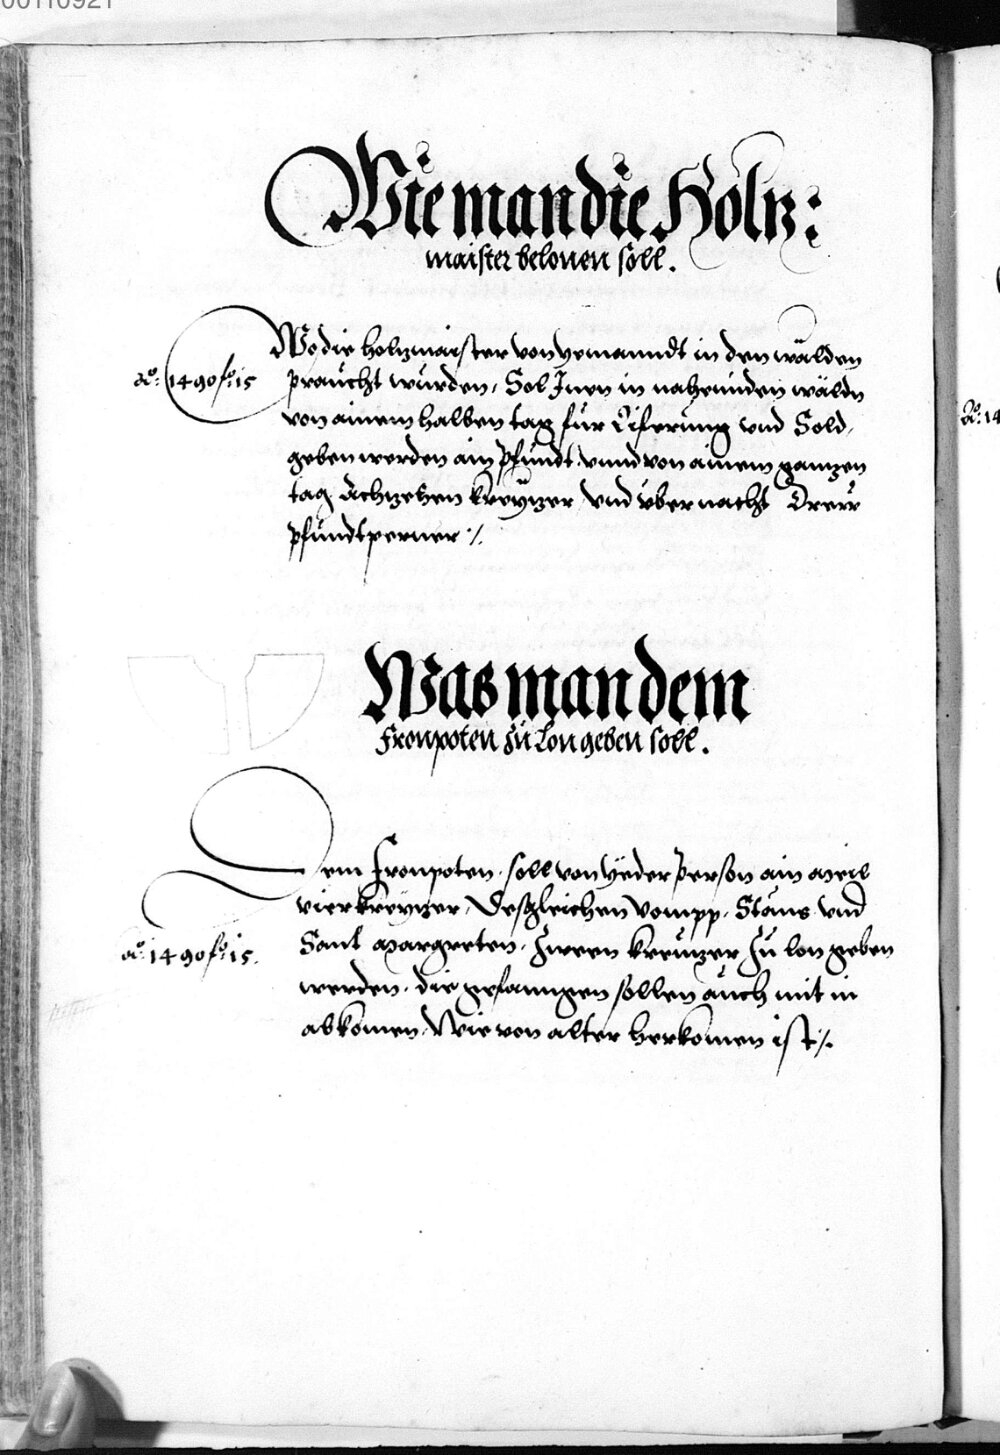 00110921
Wie man die Holtz:
maister belonen soll.
Wo die holtzmaister von yemanndt in den wälden
Ao: 1490 fo: 15
praucht wurden, Sol Inen in nahennden wäldn
von ainem halben tag für Liferung vnd Sold,
geben werden ain pfundt, vnnd von ainem gantzen
tag Achtzehen kreytzer, vnd vber nacht Dreyr
pfundt perner ./.
Was man dem
Fronpoten zu Lon geben soll.
Dem Fronpoten, soll von yeder Person ain Meil
vier kreytzer, Desgleichen Vompp, Stans vnd
Ao: 1490 fo: 15.
Sant Margreten, Zween kreutzer zu lon geben
werden, die gefanngen sollen auch mit in
abkomen, Wie von alter herkomen ist ./.
Ao: 14